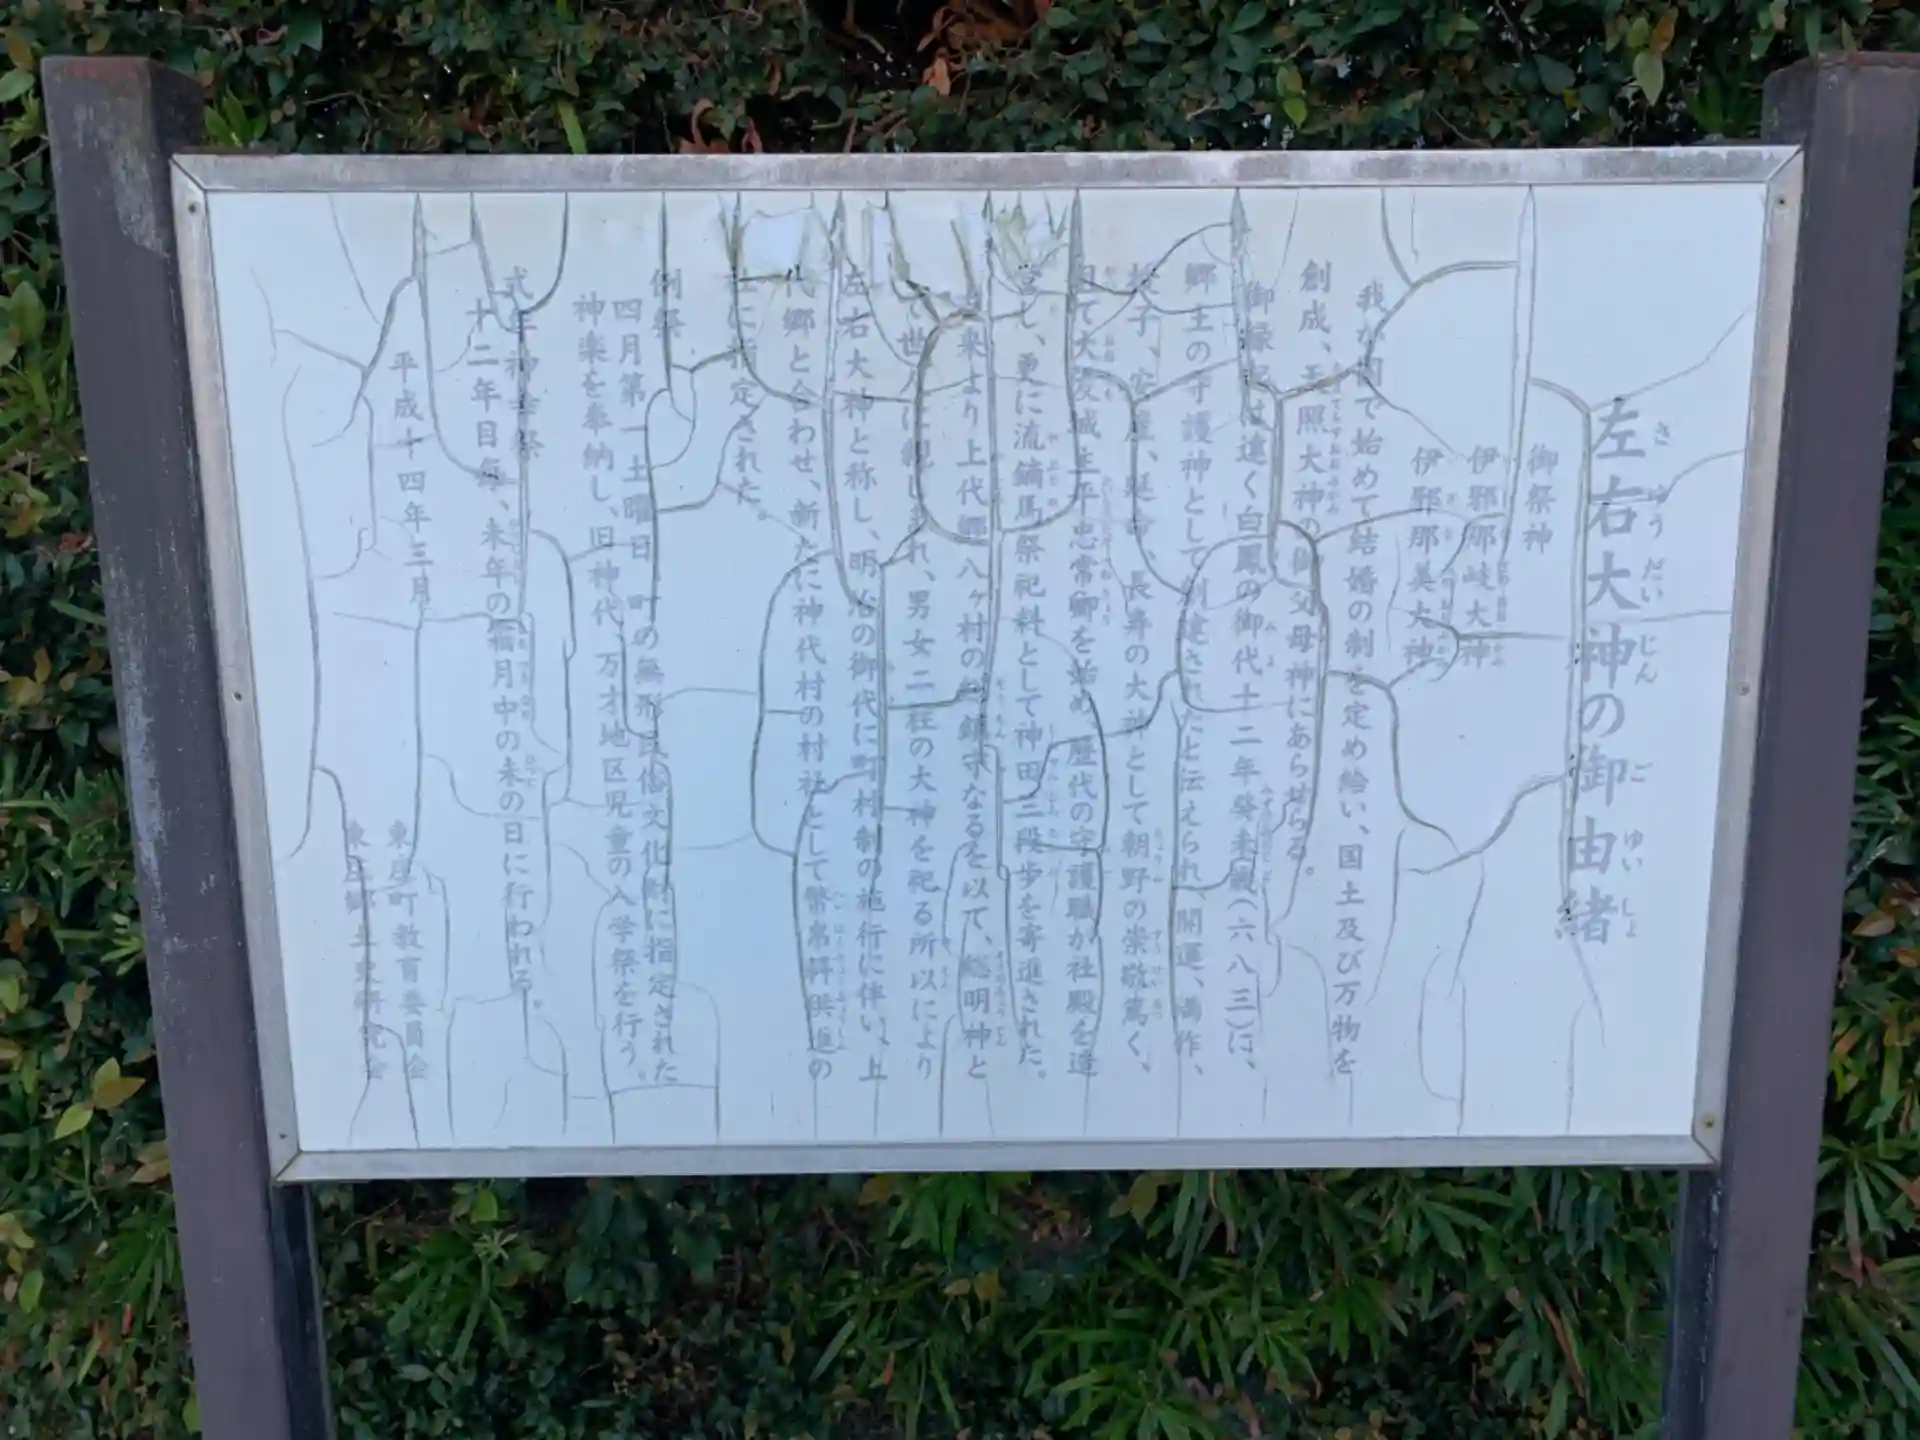 左右大神の御由緒
御祭神
伊邪那岐大神
伊邪那美大神
我が国で始めて結婚の制を定め給い、国土及び万物を
創成、天照大神の御父母神にあらせらる。
御縁起は遠く白鳳の御代十二年癸未歳(六八三)に、
郷土の守護神として創建されたと伝えられ、開運、満作、
授子、安産、延命、長寿の大神として朝野の崇敬篤く、
て大友城主平忠常卿を始め、歴代の守護職が社殿を造
し、更に流鏑馬祭祀料として神田三段歩を寄進された。
来より上代郷八ヶ村の総鎮守なるを以て、総明神と
て世人に親しまれ、男女二柱の大神を祀る所以により
左右大神と称し、明治の御代に町村制の施行に伴い、上
代郷と合わせ、新たに神代村の村社として幣帛供進の
社に指定された。
例祭
四月第一土曜日 町の無形民俗文化財に指定された
神楽を奉納し、旧神代、万才地区児童の入学祭を行う。
式年神幸祭
十二年目毎、未年の霜月中の未の日に行われる。
平成十四年三月
東庄町教育委員会
東庄郷土史研究会